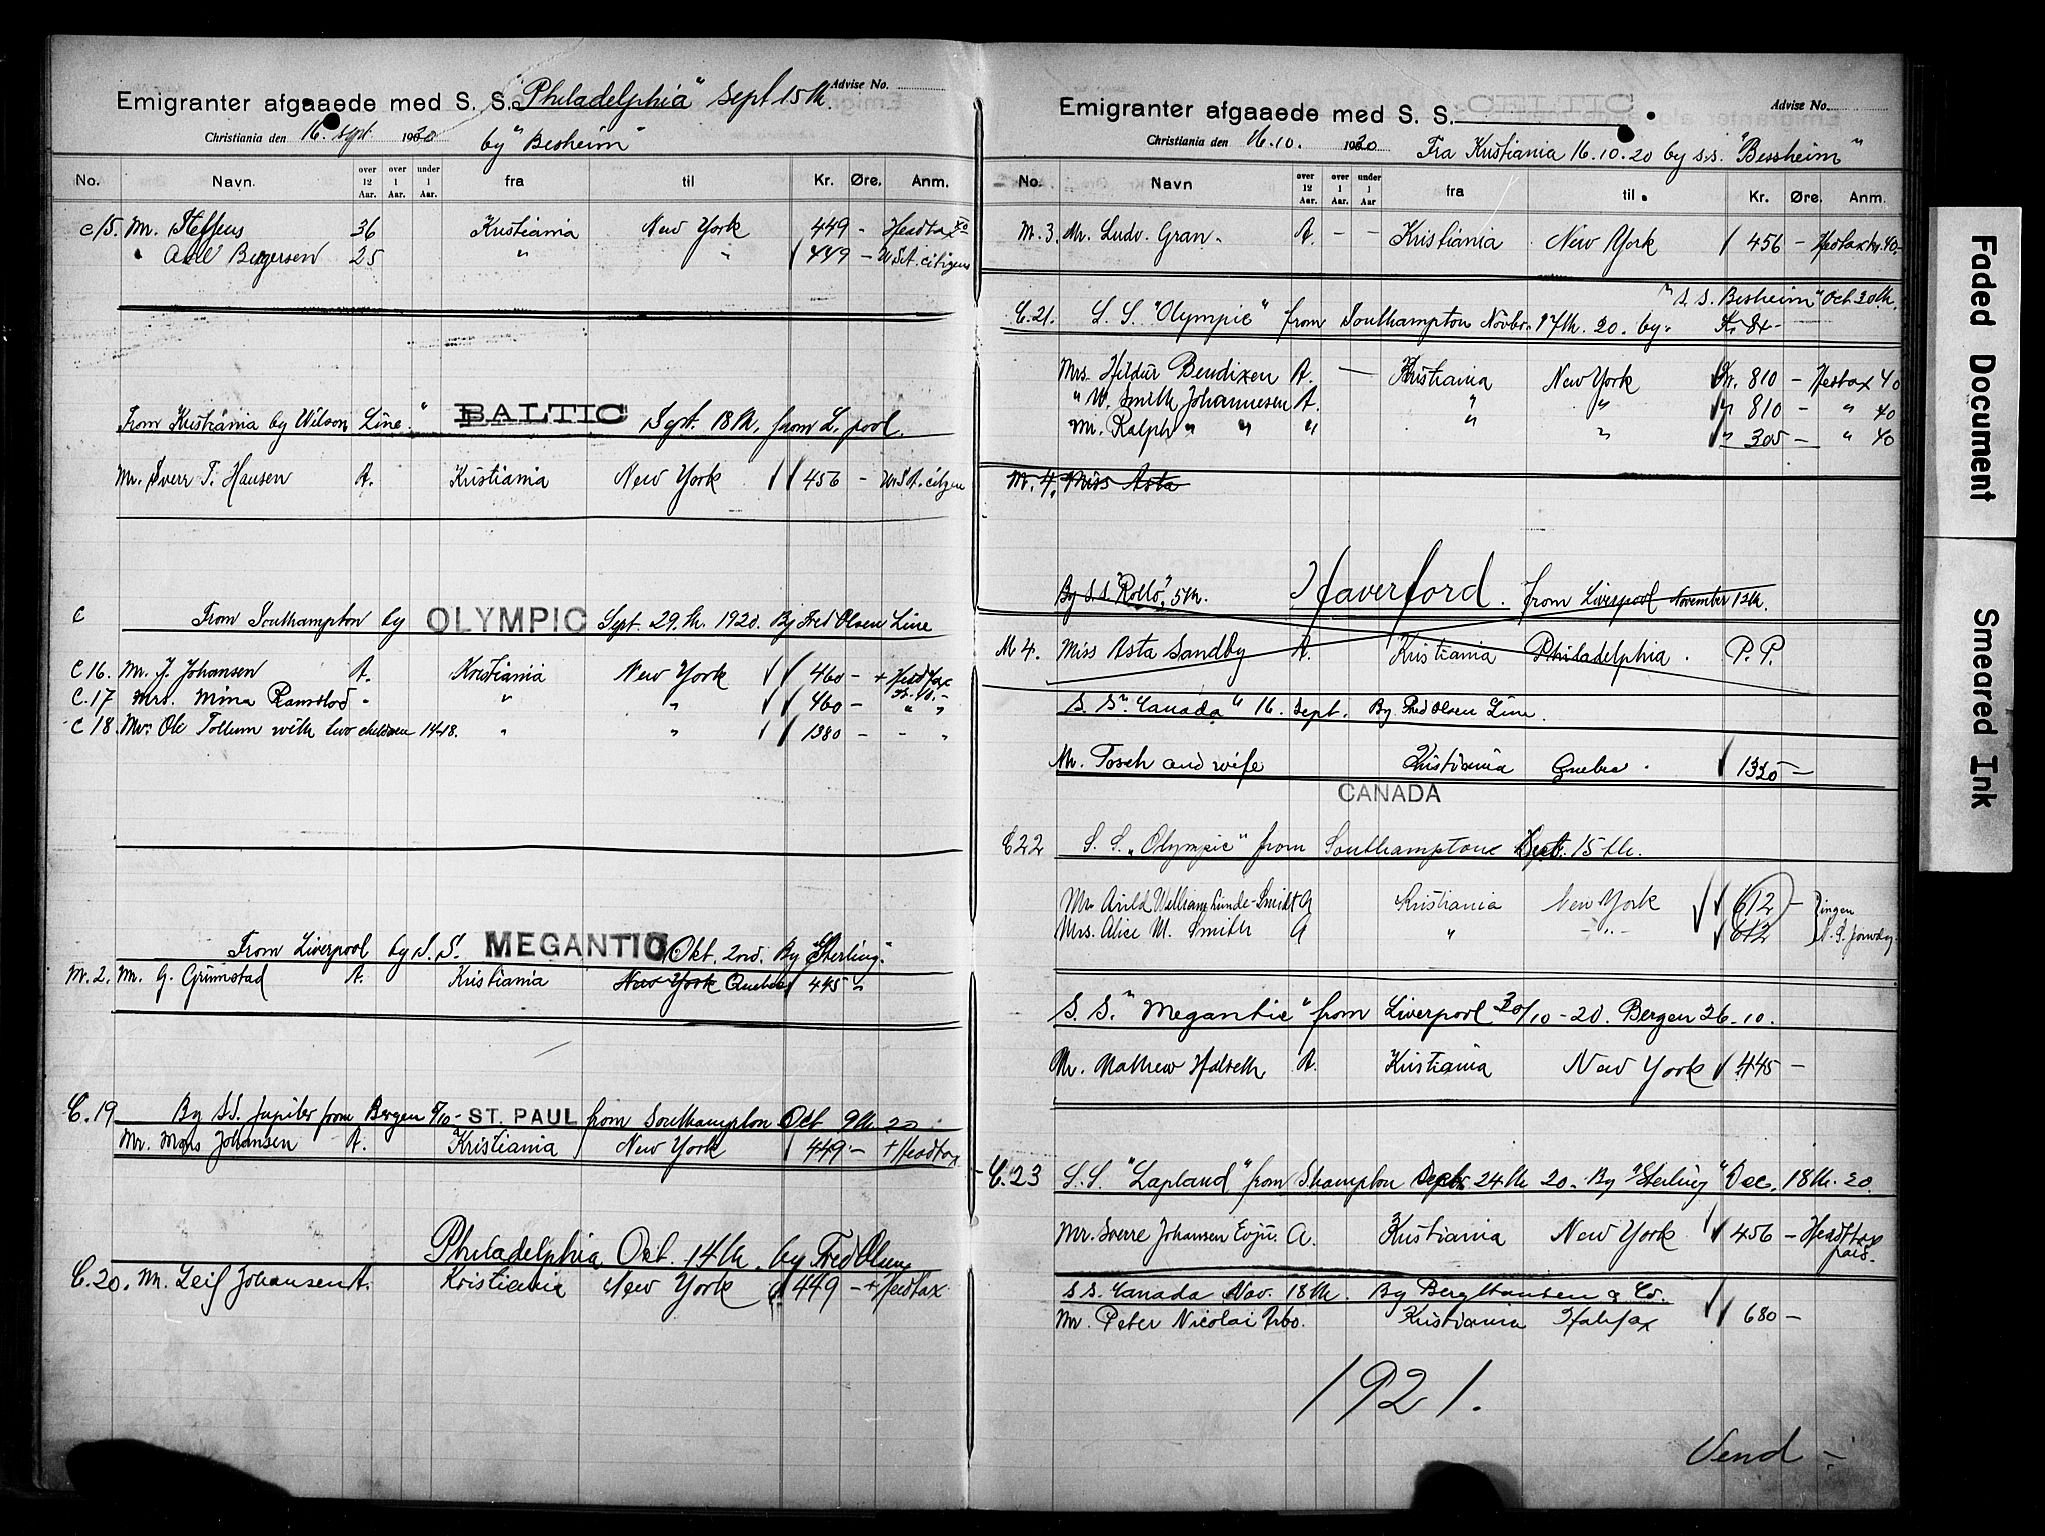 Emigranter afgaaede med S. S. "Philadelphia" Sept 15th Advise No.
Christiania den 16. sept. 1920 by "Besheim"
No. Navn. over 12 Aar. over 1 Aar. under 1 Aar. fra til Kr. Øre. Anm.
c/5. Mr. Steffens 36 Kristiania New York 449 - Headtax
" Bergersen 25 " " 449 - U.S.A. citizen
From Kristiania by Wilson Line. " BALTIC Sept. 18th, from L.pool.
Mr. Sverr T. Hansen A. Kristiania New York 456 - U.S.A. citizen
c From Southampton by OLYMPIC Sept. 29.th. 1920. By Fred Olsen Line
C 16. Mr. J. Johansen A. Kristiania New York 460 - + Headtax
C. 17 Mrs. Mina Ramstad " " " 460 - " "
C 18. Mr. Ole Tollum with two children 14-18. " " 1380 - - "
From Liverpool by S. S. MEGANTIC Okt. 2nd. By "Sterling".
M. 2. Mr. G. Grimstad A. Kristiania New York Quebec 445 "
C. 19 By S.S. Jupiter from Bergen 5/10 - ST. PAUL from Southampton Oct 9th 20
Mr. Mons Johansen A. Kristiania New York 449 - + Headtax
Philadelphia Oct. 14th. by Fred Olsen
C. 20. Mr. Leif Johansen A. Kristiania New York 449 - + Headtax
Emigranter afgaaede med S. S. Advise No.
Christiania den 16.10. 1920 Fra Kristiania 16.10.20 by S.S. "Bessheim"
No. Navn over 12 Aar. over 1 Aar. under 1 Aar fra til Kr. Øre. Anm.
M. 3. Mr. Ludv. Gran. A. - - Kristiania New York 456 - Headtax kr. 40-
"S. S. Besheim" Oct 30th.
C. 21. S. S. "Olympic" from Southampton Novbr. 17th. 20. by.
Mrs. Hildur Bendixen A. - Kristiania New York Kr. 810 - Headtax 40
" W. Smith Johannesen A. " " " 810 - " 40
Mr. Ralph " " " " " " 305 - " 40
M. 4. Miss Asta
By S.S. "Rollo" 5th. Haverford. from Liverpool November 12th.
M 4. Miss Asta Sandby A. Kristiania Philadelphia. P. P.
S. S. "Canada" 16. Sept. By Fred Olsen Line.
Mr. Tosch and wife Kristiania Quebec. 1320 -
CANADA
C 22 S. S. "Olympic" from Southampton Sept. 15th.
Mr. Arild William Lunde-Smidt A Kristiania New York 612 - ingen
Mrs. Alice M. Smith A " - " - 612
S. S. "Megantic" from Liverpool 30/10 - 20. Bergen 26-10.
Mr. Mathew Halseth A. Kristiania New York 445 -
C. 23 S. S. "Lapland" from Shampton Decbr 24th 20. By "Sterling" Dec. 18th. 20.
Mr. Sverre Johansen Evju. A. Kristiania New York 456 - Headtax
paid.
S S. Canada Nov. 18th. By Berg Hansen & Co.
Mr. Peter Nicolai Arbo. Kristiania Halifax 680 -
1921.
Vend -
Faded Document
Smeared Ink